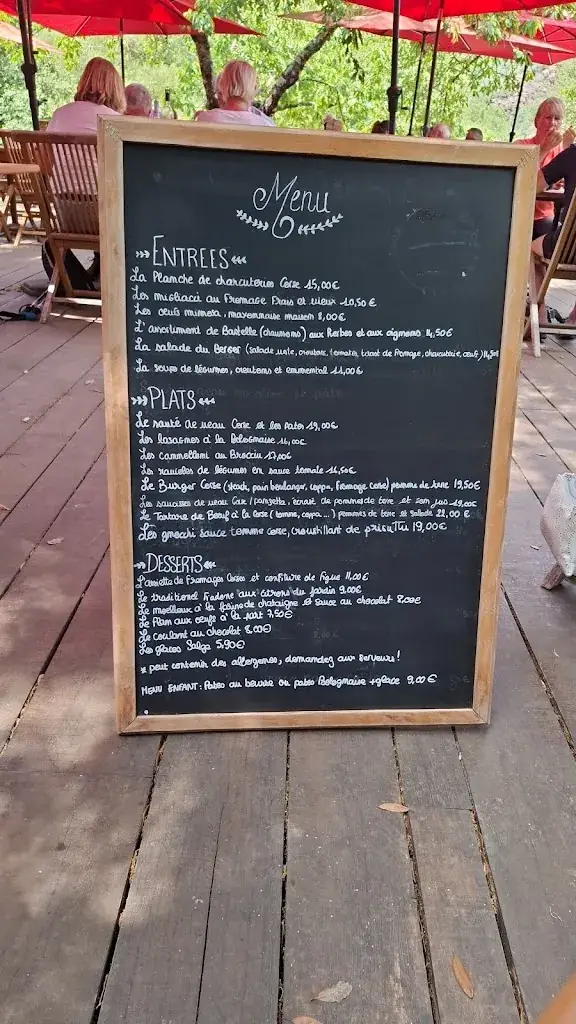 Menu
ENTREES
La Planche de charcuteries Corse 15,00€
Les migliacci au Fromage Frais et vieux 10,50€
Les oeufs mimosa, mayonnaise maison 8,00€
L'assortiment de Bastelle (chaussons) aux Herbes et aux oignons 14,50€
La salade du Berger (salade verte, croutons, tomates, tome de fromage, charcuterie, oeuf)
La soupe de légumes, croutons et emmental 11,00€
PLATS
Le sauté de veau Corse et les pates 19,00€
Les lasagnes à la Bolognaise 16,00€
Les cannelloni au Brocciu 17,00€
Les ravioles de légumes en sauce tomate 16,50€
Le Burger Corse (steack, pain boulanger, coppa, fromage corse) pomme de terre 19,50€
Les saucisses de veau Corse / panzetta, écrasé de pommes de terre et son jus 19,00€
Le Tartare de Boeuf à la Corse (tomme, coppa...) pommes de terre et salade 22,00 €
Les gnocchi sauce tomme corse, croustillant de prisuttu 19,00€
DESSERTS
L'assiette de Fromages Corses et confiture de figue 11,00€
Le traditionel Fiadone aux citrons du jardin 9,00€
Le moelleux à la farine de chataigne et sauce au chocolat 8,00€
Le Flan aux oeufs à la part 7,50€
Le coulant au chocolat 8,00€
Les glaces Salge 5,90€
* peut contenir des allergenes, demandez aux serveurs!
MENU ENFANT: Pates au beurre ou pates Bolognaise + glace 9,00 €